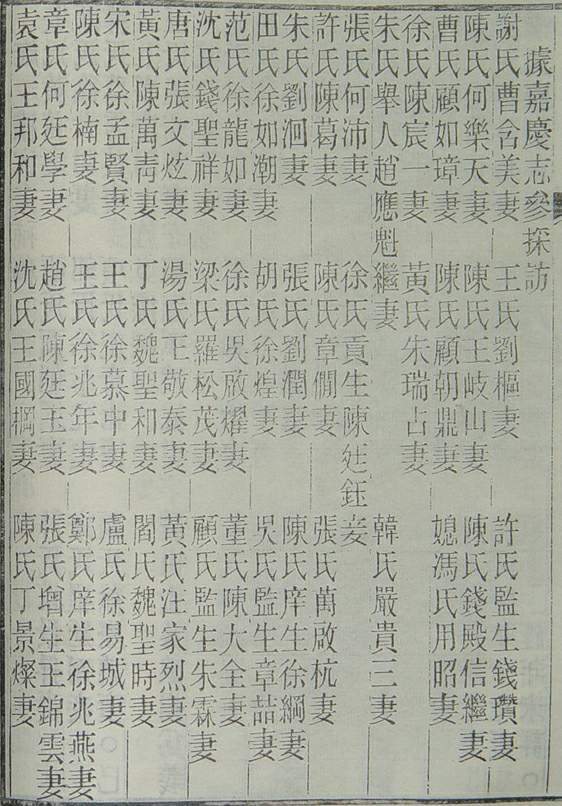 據嘉慶志參採訪
謝氏曹含美妻 王氏劉樞妻 許氏監生錢瓚妻
陳氏何樂天妻 陳氏王岐山妻 陳氏錢殿信繼妻
曹氏顧如璋妻 陳氏顧朝鼎妻 媳馮氏用昭妻
徐氏陳宸一妻 黃氏朱瑞占妻
朱氏舉人趙應魁繼妻 韓氏嚴貴三妻
張氏何沛妻 徐氏貢生陳廷鈺妾
許氏陳葛妻 陳氏章僩妻 張氏萬啟杭妻
朱氏劉洄妻 張氏劉潤妻 陳氏庠生徐綱妻
田氏徐如潮妻 胡氏徐煌妻 吳氏監生章喆妻
范氏徐龍如妻 徐氏吳啟燿妻 董氏陳大全妻
沈氏錢聖祥妻 梁氏羅松茂妻 顧氏監生朱霖妻
唐氏張文炫妻 湯氏王敬泰妻 黃氏汪家烈妻
黃氏陳萬青妻 丁氏魏聖和妻 閻氏魏聖時妻
宋氏徐孟賢妻 王氏徐慕中妻 盧氏徐易城妻
陳氏徐楠妻 王氏徐兆年妻 鄭氏庠生徐兆燕妻
章氏何廷學妻 趙氏陳廷玉妻 張氏增生王錦雲妻
袁氏王邦和妻 沈氏王國棡妻 陳氏丁景燦妻